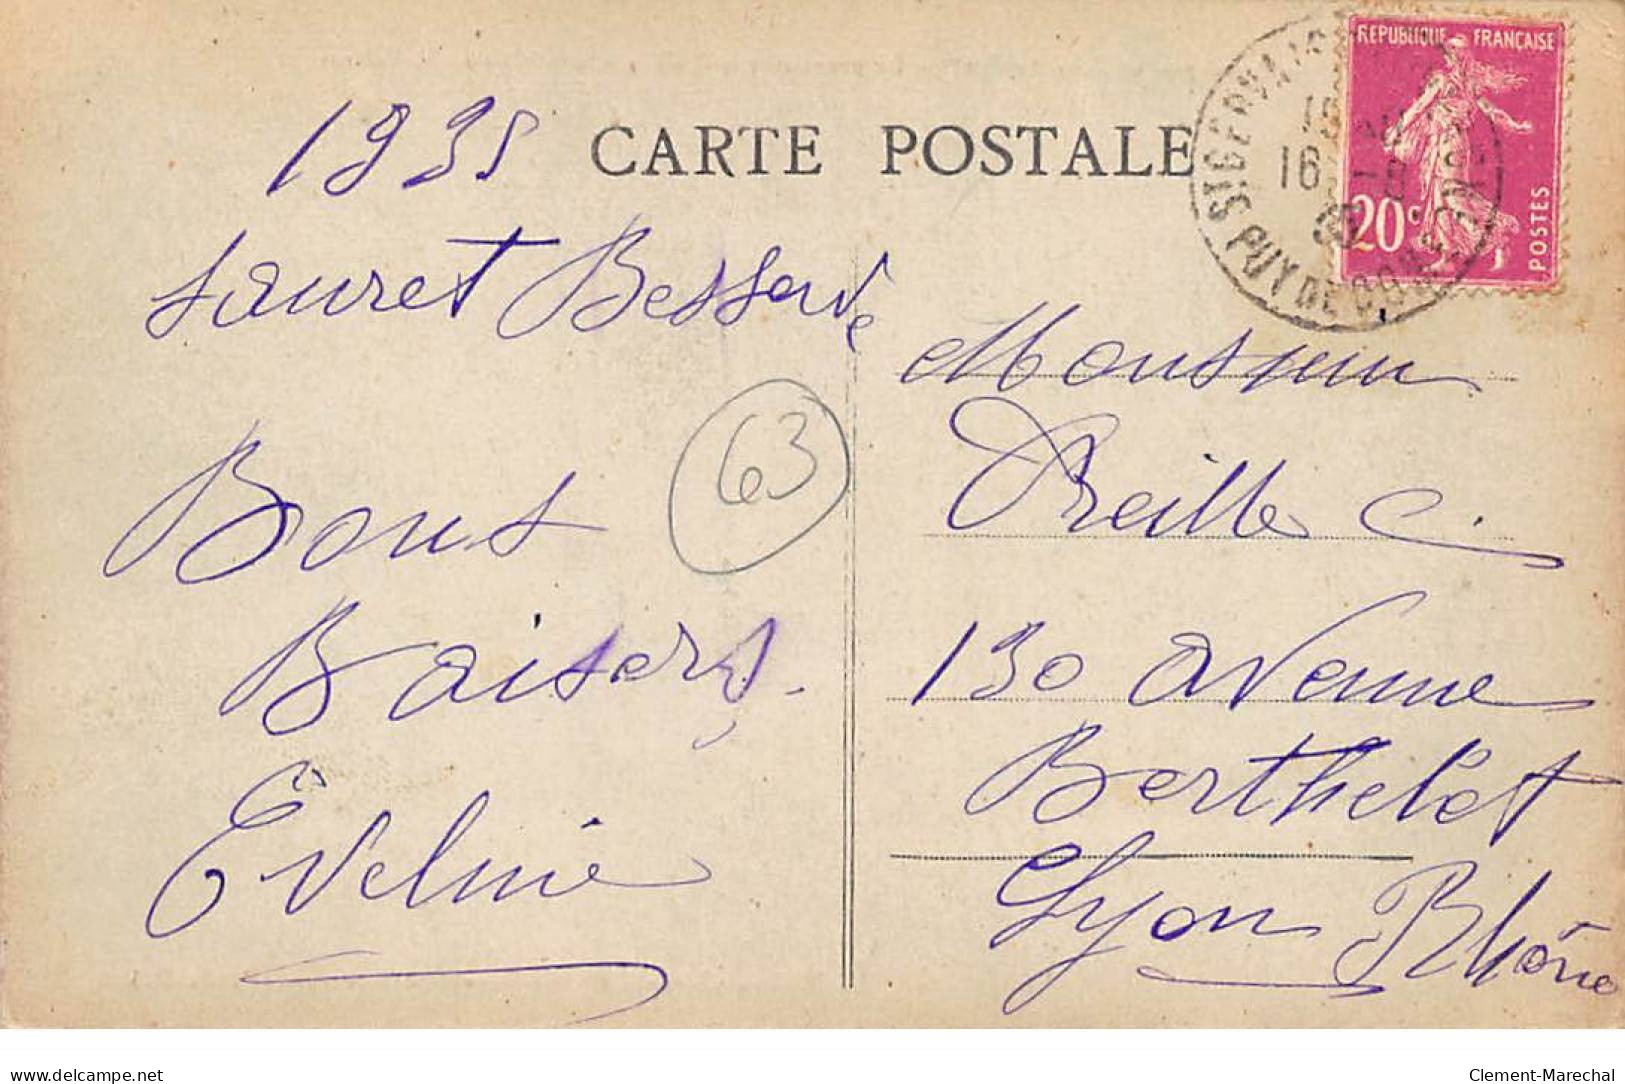 1935
CARTE POSTALE
Sauret Besserve
Bons
Baisers
Evelnie
63
REPUBLIQUE FRANÇAISE
20c
POSTES
ST GERVAIS D'AUVERGNE
PUY DE DOME
16
Monsieur
Reille C.
130 avenue
Berthelot
Lyon Rhône
delcampe.net
Clement-Marechal